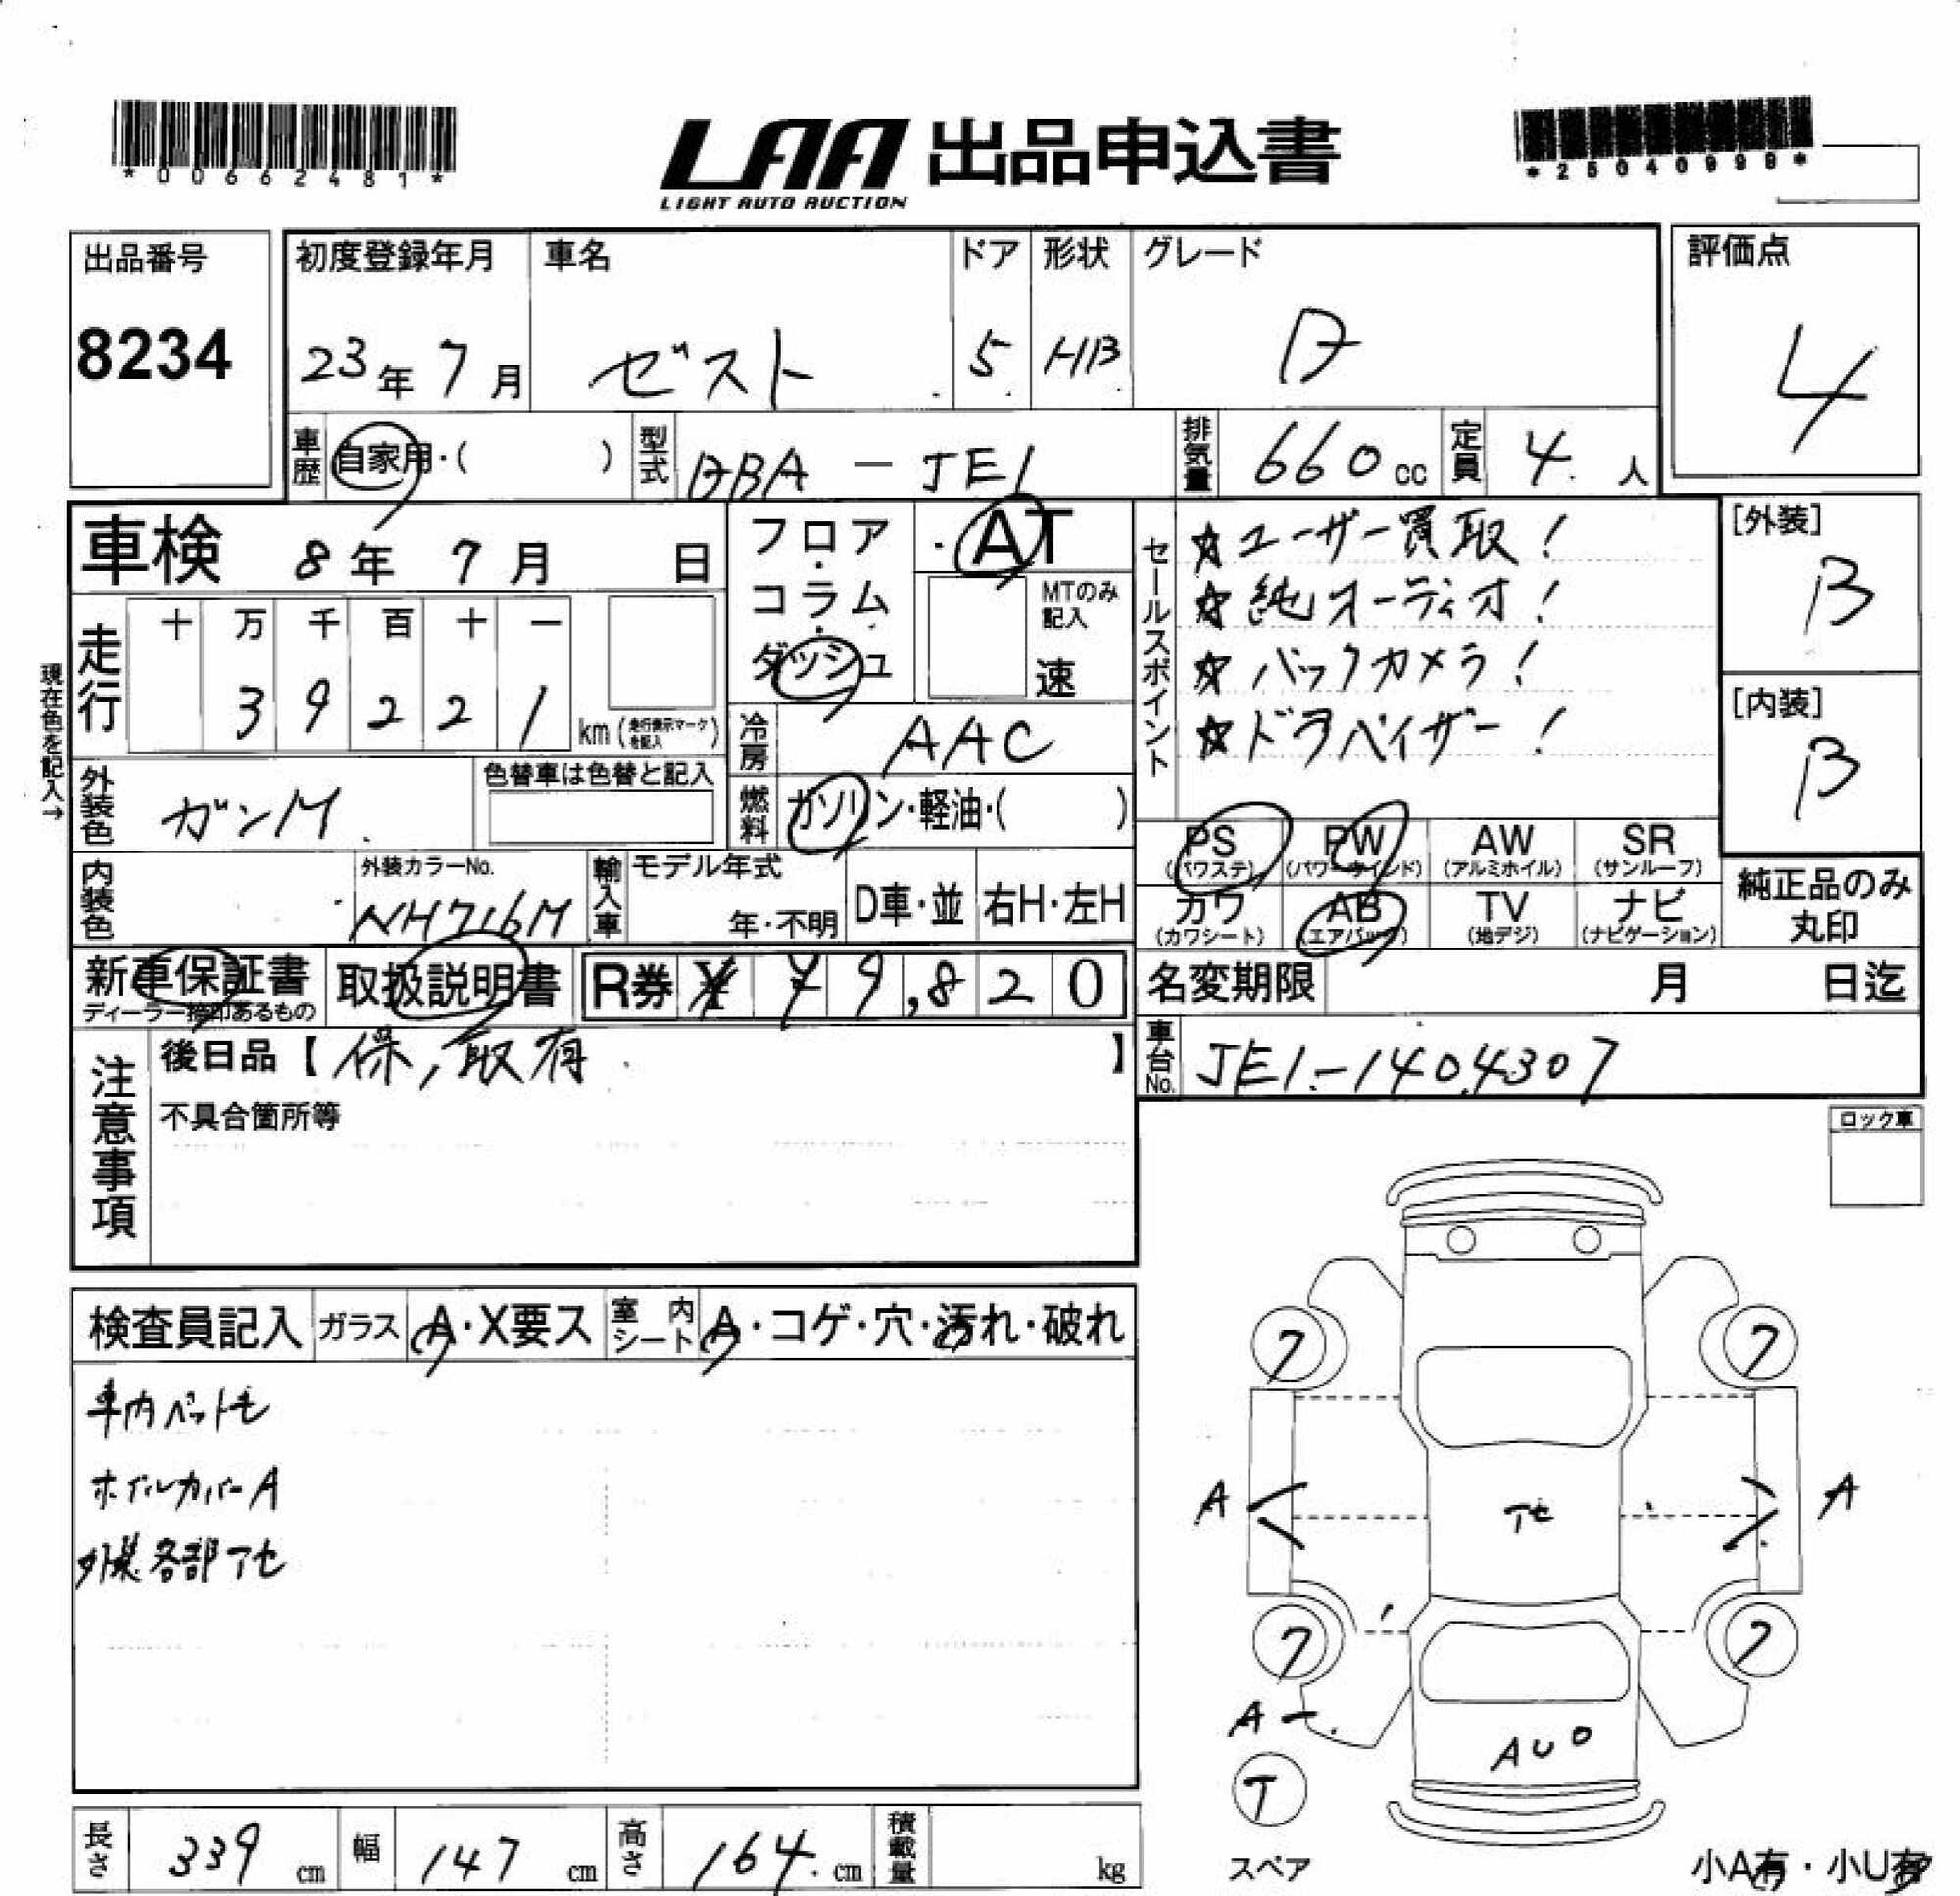 *00662481*
LAA 出品申込書
LIGHT AUTO AUCTION
*25040999*
出品番号
8234
初度登録年月
23年 7月
車名
ゼスト
ドア
5
形状
HB
グレード
D
評価点
4
車歴
自家用・( )
型式
DBA - JE1
排気量
660 cc
定員
4 人
車検 8年 7月 日
フロア・コラム・ダッシュ
AT
MTのみ記入
速
セールスポイント
☆ユーザー買取!
☆純オーディオ!
☆バックカメラ!
☆ドアバイザー!
[外装]
B
[内装]
B
現在色を記入→
走行
十 万 千 百 十 一
3 9 2 2 1 km (走行表示マークを記入)
冷房
AAC
外装色
ガンM
色替車は色替と記入
燃料
ガソリン・軽油・( )
PS (パワステ)
PW (パワーウインド)
AW (アルミホイル)
SR (サンルーフ)
カワ (カワシート)
AB (エアバッグ)
TV (地デジ)
ナビ (ナビゲーション)
純正品のみ丸印
内装色
外装カラーNo.
NH716M
輸入車
モデル年式
年・不明
D車・並
右H・左H
新車保証書
ディーラー捺印あるもの
取扱説明書
R券 ¥ ¥ 9,820
名変期限 月 日迄
車台No.
JE1-1404307
注意事項
後日品【保,取有 】
不具合箇所等
ロック車
検査員記入
ガラス
A・X要ス
室内シート
A・コゲ・穴・汚れ・破れ
車内ペット毛
ホイルカバーA
外装各部アセ
7
7
A
アセ
A
7
7
A
AUO
T
スペア
小A有・小U有
長さ
339 cm
幅
147 cm
高さ
164 cm
積載量
kg